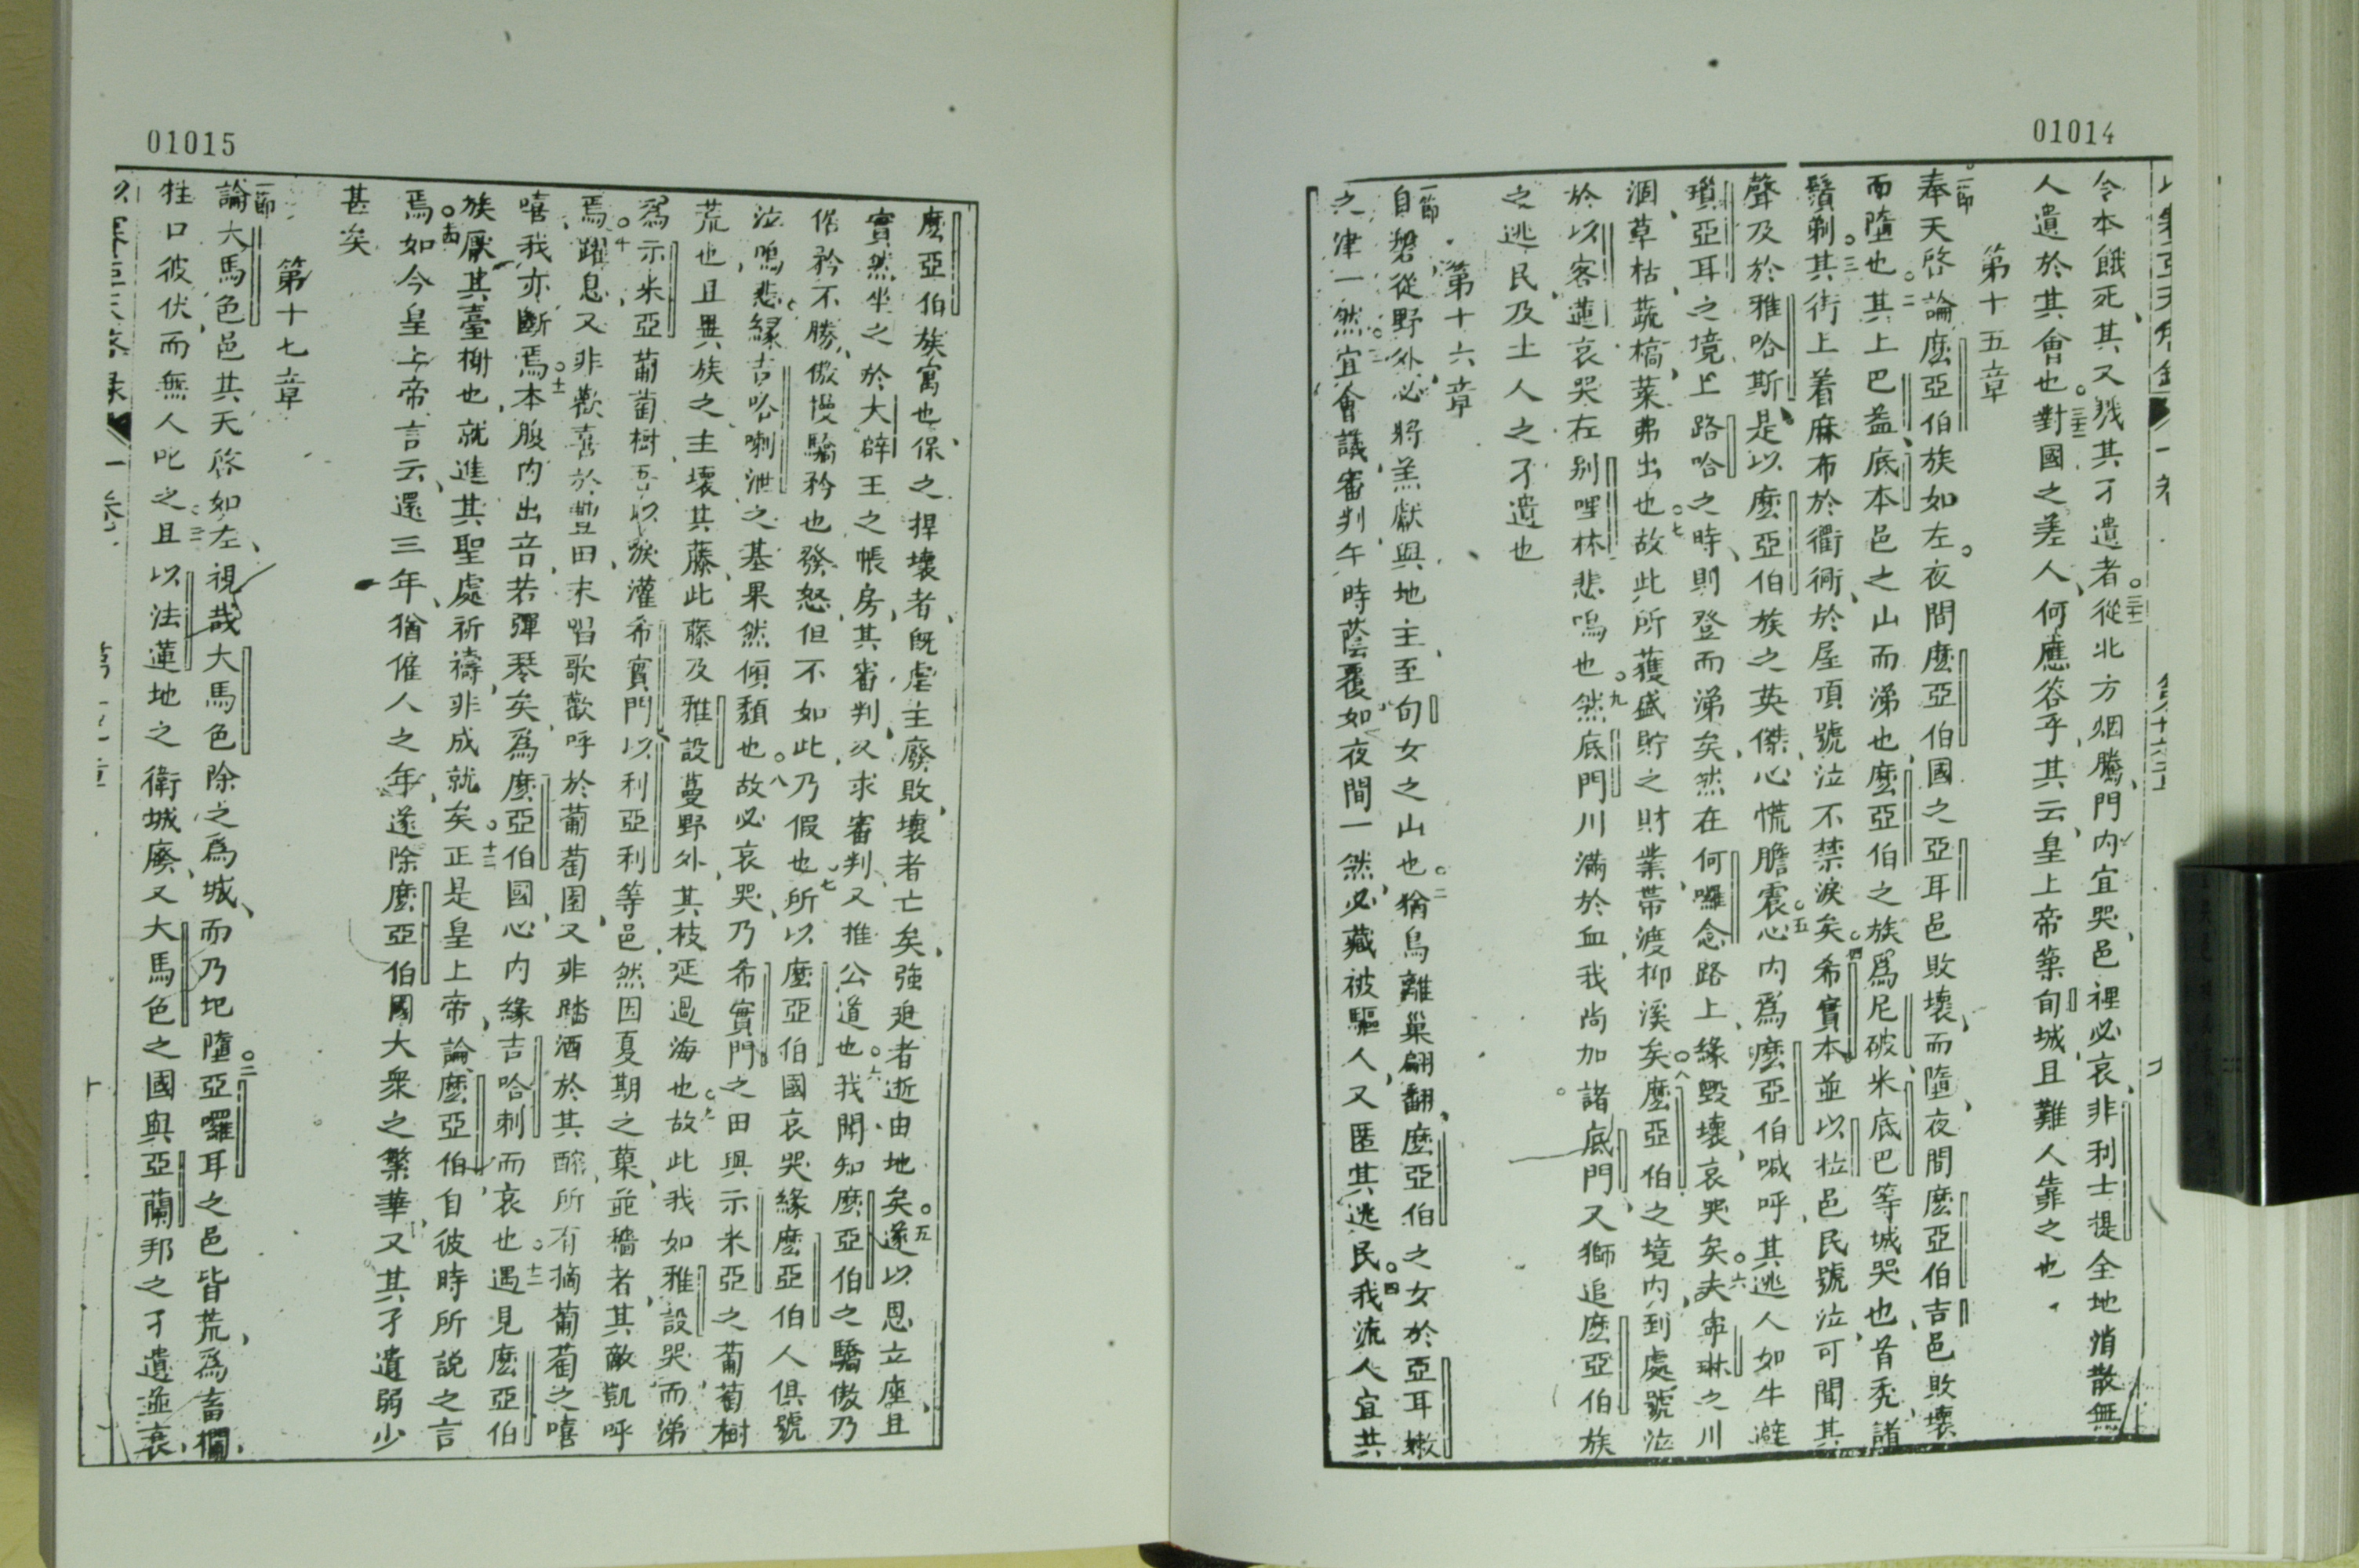 01014
令本餓死其又戮其孑遺者三十一從北方烟騰門內宜哭邑裡必哀非利士提全地消散無
人遺於其會也三十二對國之差人何應答乎其云皇上帝築旬城且難人靠之也
第十五章
一節奉天啓論麽亞伯族如左夜間麽亞伯國之亞耳邑敗壞而墮夜間麽亞伯吉邑敗壞
而墮也二其上巴益底本邑之山而涕也麽亞伯之族爲尼破米底巴等城哭也首禿諸
鬚剃三其街上着麻布於衢衕於屋頂號泣不禁淚矣四希實本並以拉邑民號泣可聞其
聲及於雅哈斯是以麽亞伯族之英傑心慌膽震五心內爲麽亞伯喊呼其逃人如牛避
瑣亞耳之境上路哈之時則登而涕矣然在何囉念路上緣毀壞哀哭矣六夫寗琳之川
涸草枯蔬槁菜弗出也七故此所獲盛貯之財業帶渡柳溪矣八麽亞伯之境內到處號泣
於以客蓮哀哭在别哩林悲嗚也九然底門川滿於血我尚加諸底門又獅追麽亞伯族
之逃民及土人之孑遺也
第十六章
一節自磐從野外必將羔獻與地主至旬女之山也二猶鳥離巢翩翻麽亞伯之女於亞耳嫩
之津一然三宜會議審判午時蔭覆如夜間一然必藏被驅人又匿其逃民四我流人宜共
01015
麽亞伯族寓也保之捍壞者旣虐主廢敗壞者亡矣強廹者逝由地矣五遂以恩立座且
實然坐之於大辟王之帳房其審判又求審判又推公道也六我聞知麽亞伯之驕傲乃
倨矜不勝傲慢驕矜也發怒但不如此乃假也七所以麽亞伯國哀哭緣麽亞伯人俱號
泣嗚悲緣吉哈喇泄之基果然傾頽也八故必哀哭乃希實門之田與示米亞之葡萄樹
荒也且異族之主壞其藤此藤及雅設蔓野外其枝延過海也九故此我如雅設哭而涕
爲示米亞葡萄樹吾以淚灌希實門以利亞利等邑然因夏期之菓並穡者其敵凱呼
焉十躍息又非歡喜於豐田未唱歌歡呼於葡萄園又非踏酒於其醡所有摘葡萄之嘻
嘻我亦斷焉十一本腹內出音若彈琴矣爲麽亞伯國心內緣吉哈剌而哀也十二遇見麽亞伯
族厭其臺榭也就進其聖處祈禱非成就矣十三正是皇上帝論麽亞伯自彼時所說之言
焉十四如今皇上帝言云還三年猶僱人之年遂除麽亞伯國大衆之繁華又其孑遺弱少
甚矣
第十七章
一節論大馬色邑其天啓如左視哉大馬色除之爲城而乃圮墮二亞囉耳之邑皆荒爲畜欄
牲口彼伏而無人叱之三且以法蓮地之衛城廢又大馬色之國與亞蘭邦之孑遺並衰